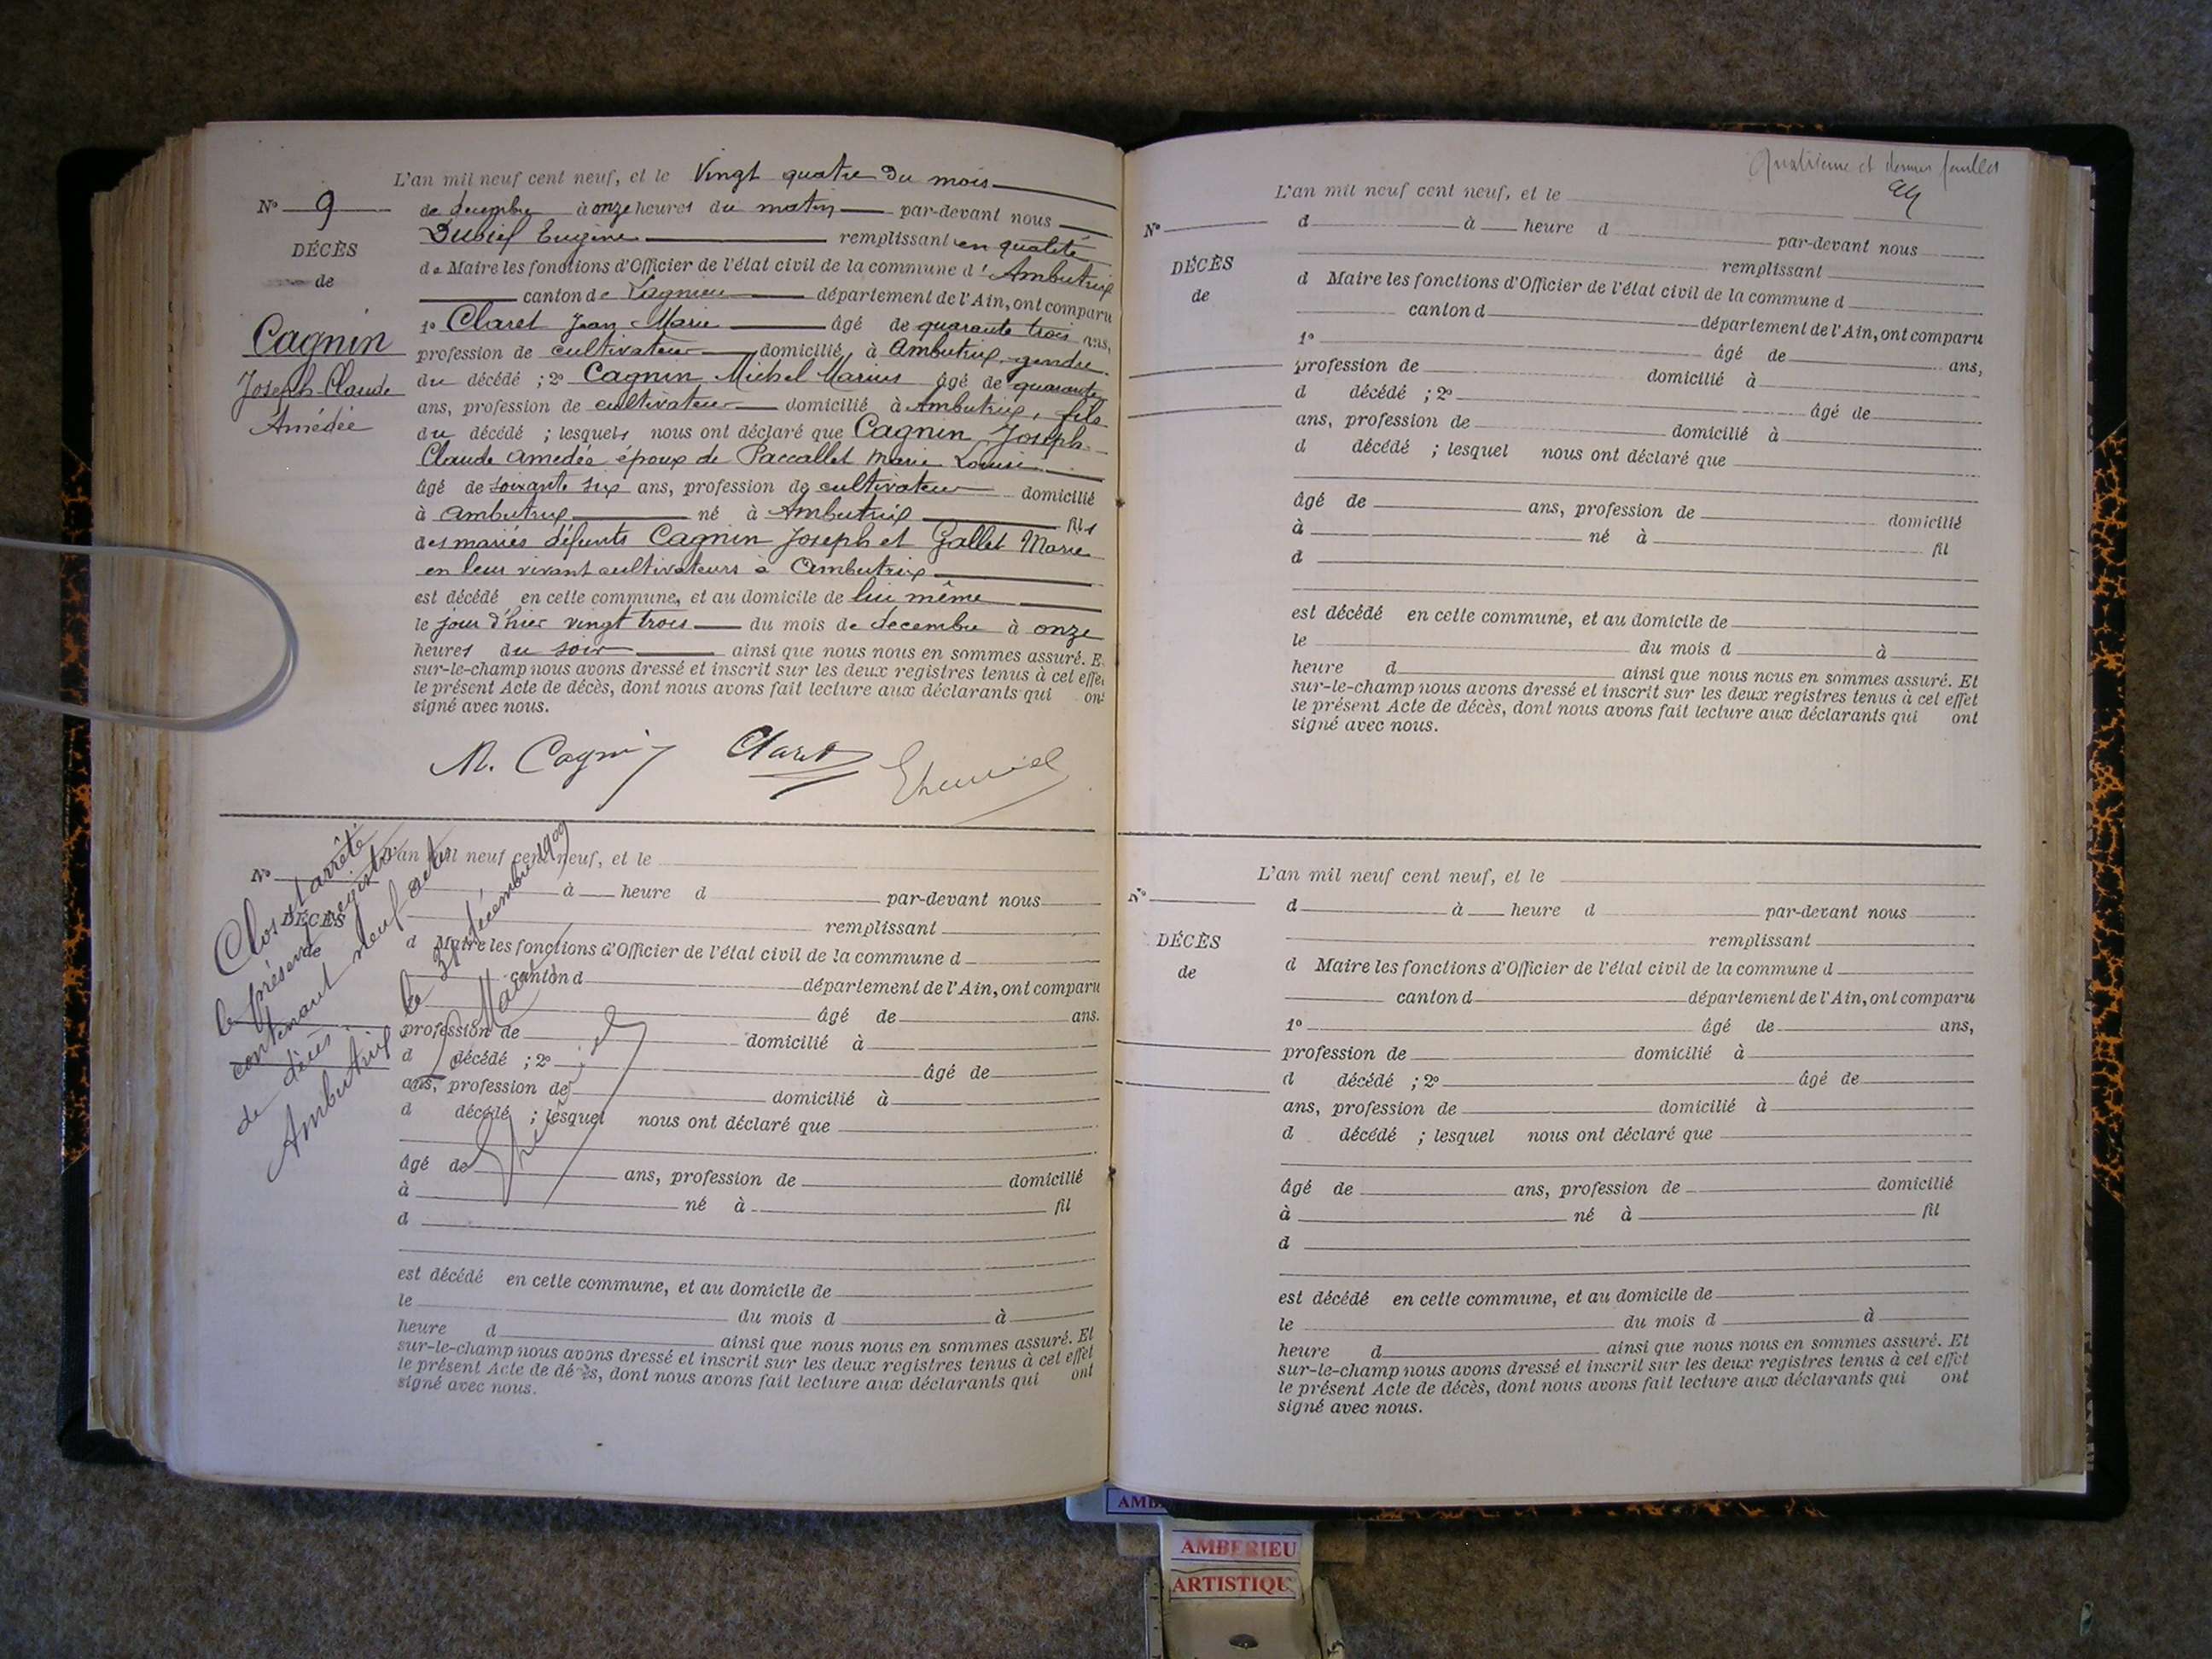 L'an mil neuf cent neuf, et le Vingt quatre du mois
N° 9
de decembre à onze heures du matin par-devant nous
Eugène remplissant en qualité
DÉCÈS
de
de Maire les fonctions d'Officier de l'état civil de la commune d'Ambutrix
canton de Lagnieu département de l'Ain, ont comparu
1° Claret Jean Marie âgé de quarante trois ans,
Cagnin
Joseph-Claude
Amédée
profession de cultivateur domicilié à Ambutrix, gendre
du décédé ; 2° Cagnin Michel Marius âgé de quarante
ans, profession de cultivateur domicilié à Ambutrix, fils
du décédé ; lesquels nous ont déclaré que Cagnin Joseph-
Claude Amedée époux de Paccallet Marie Louise
âgé de soixante six ans, profession de cultivateur domicilié
à Ambutrix né à Ambutrix fils
des mariés défunts Cagnin Joseph et Gallet Marie
en leur vivant cultivateurs à Ambutrix
est décédé en cette commune, et au domicile de lui même
le jour d'hier vingt trois du mois de decembre à onze
heures du soir ainsi que nous nous en sommes assuré. E
sur-le-champ nous avons dressé et inscrit sur les deux registres tenus à cet effe
le présent Acte de décès, dont nous avons fait lecture aux déclarants qui ont
signé avec nous.
M. Cagnin Claret
Clos et arrêté
le présent registre
contenant neuf actes
de décès
Ambutrix le 31 décembre 1909
Le Maire
L'an mil neuf cent neuf, et le
N°
à heure d par-devant nous
DÉCÈS
de
remplissant
d Maire les fonctions d'Officier de l'état civil de la commune d
canton d département de l'Ain, ont comparu
âgé de ans.
profession de domicilié à
d décédé ; 2° âgé de
ans, profession de domicilié à
d décédé ; lesquel nous ont déclaré que
âgé de ans, profession de domicilié
à né à fil
d
est décédé en cette commune, et au domicile de
le du mois d à
heure d ainsi que nous nous en sommes assuré. Et
sur-le-champ nous avons dressé et inscrit sur les deux registres tenus à cet effet
le présent Acte de décès, dont nous avons fait lecture aux déclarants qui ont
signé avec nous.
Quatrième et dernier feuillet
L'an mil neuf cent neuf, et le
N°
d à heure d par-devant nous
DÉCÈS
de
remplissant
d Maire les fonctions d'Officier de l'état civil de la commune d
canton d département de l'Ain, ont comparu
1° âgé de ans,
profession de domicilié à
d décédé ; 2° âgé de
ans, profession de domicilié à
d décédé ; lesquel nous ont déclaré que
âgé de ans, profession de domicilié
à né à fil
d
est décédé en cette commune, et au domicile de
le du mois d à
heure d ainsi que nous nous en sommes assuré. Et
sur-le-champ nous avons dressé et inscrit sur les deux registres tenus à cet effet
le présent Acte de décès, dont nous avons fait lecture aux déclarants qui ont
signé avec nous.
L'an mil neuf cent neuf, et le
N°
d à heure d par-devant nous
DÉCÈS
de
remplissant
d Maire les fonctions d'Officier de l'état civil de la commune d
canton d département de l'Ain, ont comparu
1° âgé de ans,
profession de domicilié à
d décédé ; 2° âgé de
ans, profession de domicilié à
d décédé ; lesquel nous ont déclaré que
âgé de ans, profession de domicilié
à né à fil
d
est décédé en cette commune, et au domicile de
le du mois d à
heure d ainsi que nous nous en sommes assuré. Et
sur-le-champ nous avons dressé et inscrit sur les deux registres tenus à cet effet
le présent Acte de décès, dont nous avons fait lecture aux déclarants qui ont
signé avec nous.
AMB
AMBERIEU
ARTISTIQU